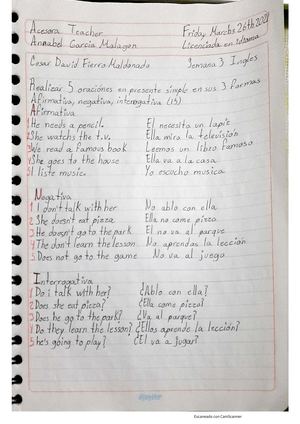 Acesora Teacher Friday March 26th 2021
Annabel Garcia Malagon Licenciada en idioma
Cesar David Fierro Maldonado Semana 3 Ingles
Realizar 3 oraciónes en presente simple en sus 3 formas
Afirmativa, negativa, interrogativa (15)
Afirmativa
1 He needs a pencil. El necesita un lapiz
2 She watchs the t.v. Ella mira la televisión
3 We read a famous book Leemos un libro famoso
4 She goes to the house Ella va a la casa
5 I liste music. Yo escucho musica
Negativa
1 I don't talk with her No ablo con ella
2 She doesn't eat pizza Ella no come pizza
3 He doesn't go to the park El no va al parque
4 The don't learn the lesson No aprendas la lección
5 Does not go to the game No va al juego
Interrogativa
1 Do i talk with her? ¿Ablo con ella?
2 Does she eat pizza? ¿Ella come pizza?
3 Does he go to the park? ¿Va al parque?
4 Do they learn the lesson? ¿Ellos aprende la lección?
5 he's going to play? ¿El va a jugar?
Escaneado con CamScanner